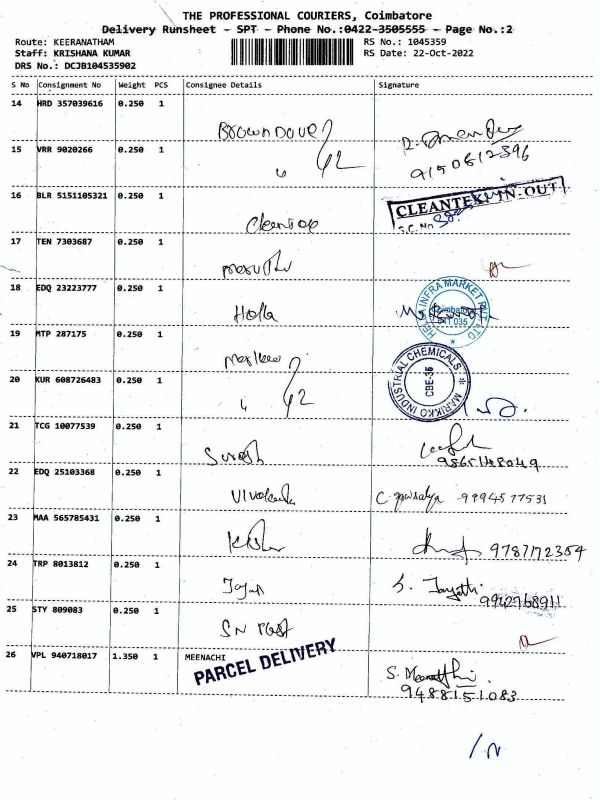 THE PROFESSIONAL COURIERS, Coimbatore
Delivery Runsheet - SPT - Phone No.:0422-3505555 - Page No.:2
Route: KEERANATHAM
Staff: KRISHANA KUMAR
DRS No.: DCJB104535902
RS No.: 1045359
RS Date: 22-Oct-2022
S No Consignment No Weight PCS Consignee Details Signature
14 HRD 357039616 0.250 1
15 VRR 9020266 0.250 1 42
9150612396
16 BLR 5151105321 0.250 1
CLEANTEX IN-OUT
S.C.No
17 TEN 7303687 0.250 1
18 EDQ 23223777 0.250 1 Holla
INFRA MARKET PVT LTD
Coimbatore
641 035
19 MTP 287175 0.250 1
20 KUR 608726483 0.250 1 42
MARIKKO INDUSTRIAL CHEMICALS
CBE-35
21 TCG 10077539 0.250 1 Suresh
9865148049
22 EDQ 25103368 0.250 1 9994577531
23 MAA 565785431 0.250 1 9787172354
24 TRP 8013812 0.250 1 S. Jayathi
9942768911
25 STY 809083 0.250 1
26 VPL 940718017 1.350 1 MEENACHI
PARCEL DELIVERY
S. Meenatchi
9488151083